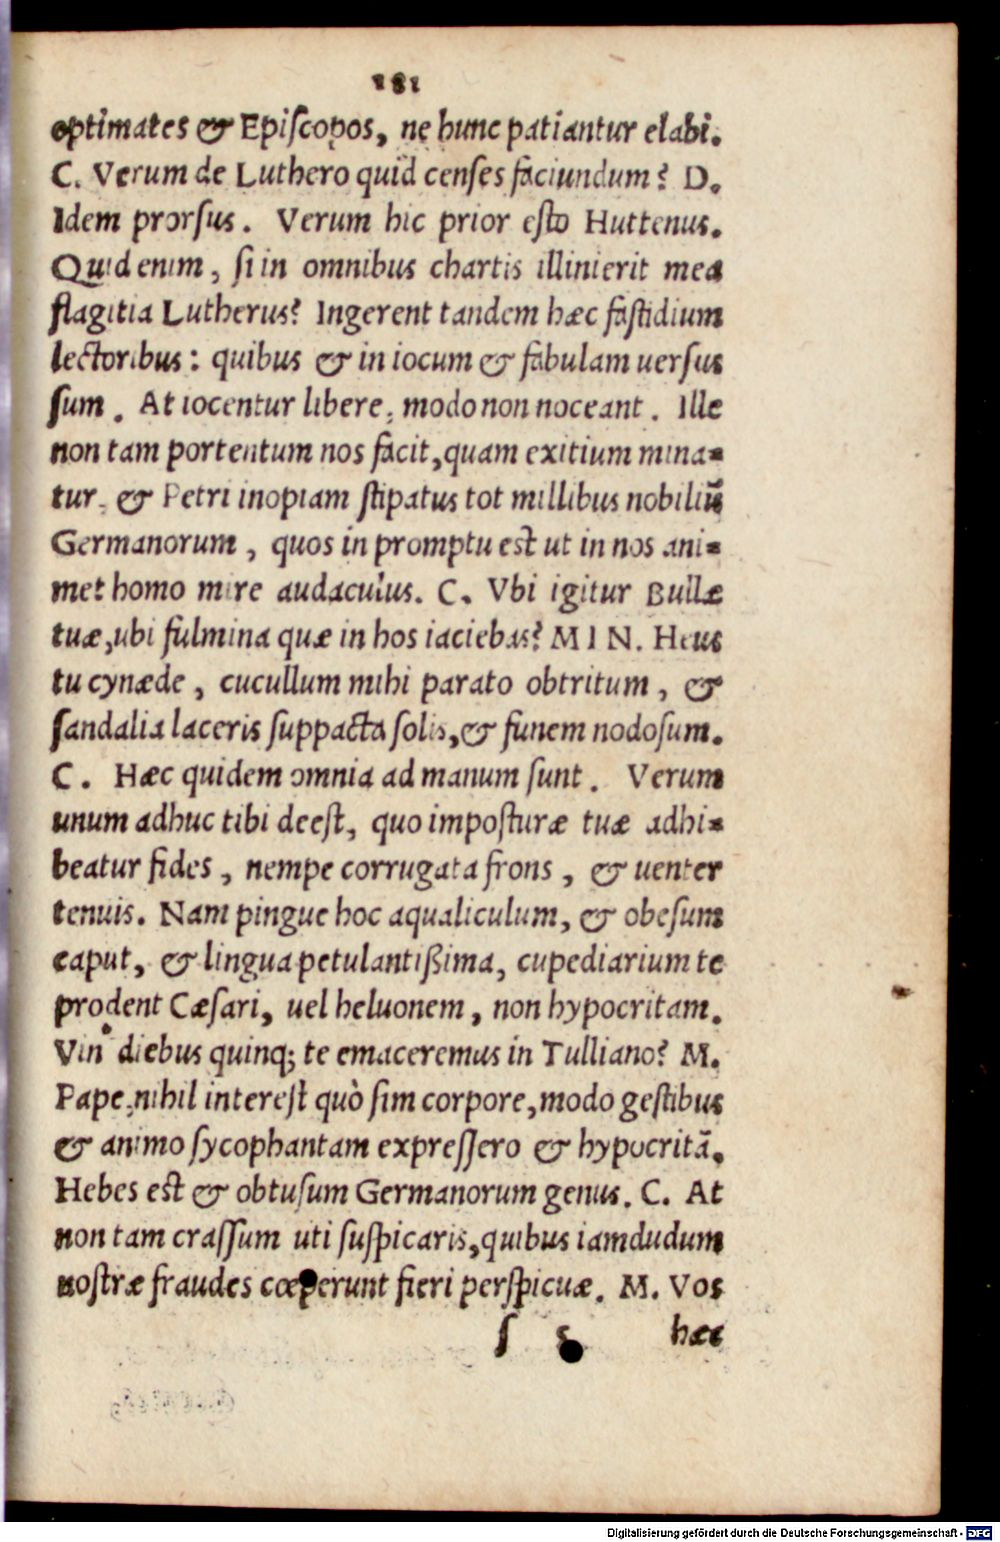 281
optimates & Episcopos, ne hunc patiantur elabi.
C. Verum de Luthero quid censes faciundum? D.
Idem prorsus. Verum hic prior esto Huttenus.
Quid enim, si in omnibus chartis illinierit mea
flagitia Lutherus? Ingerent tandem hæc fastidium
lectoribus: quibus & in iocum & fabulam uersus
sum. At iocentur libere, modo non noceant. Ille
non tam portentum nos facit, quam exitium mina=
tur, & Petri inopiam stipatus tot millibus nobiliũ
Germanorum, quos in promptu est ut in nos ani=
met homo mire audaculus. C. Vbi igitur Bullæ
tuæ, ubi fulmina quæ in hos iaciebas? MIN. Heus
tu cynæde, cucullum mihi parato obtritum, &
sandalia laceris suppacta solis, & funem nodosum.
C. Hæc quidem omnia ad manum sunt. Verum
unum adhuc tibi deest, quo imposturæ tuæ adhi=
beatur fides, nempe corrugata frons, & uenter
tenuis. Nam pingue hoc aqualiculum, & obesum
caput, & lingua petulantißima, cupediarium te
prodent Cæsari, uel heluonem, non hypocritam.
Vin diebus quinq; te emaceremus in Tulliano? M.
Pape, nihil interest quò sim corpore, modo gestibus
& animo sycophantam expressero & hypocritã.
Hebes est & obtusum Germanorum genus. C. At
non tam crassum uti suspicaris, quibus iamdudum
nostræ fraudes cœperunt fieri perspicuæ. M. Vos
s 5 hæc
Digitalisierung gefördert durch die Deutsche Forschungsgemeinschaft - DFG